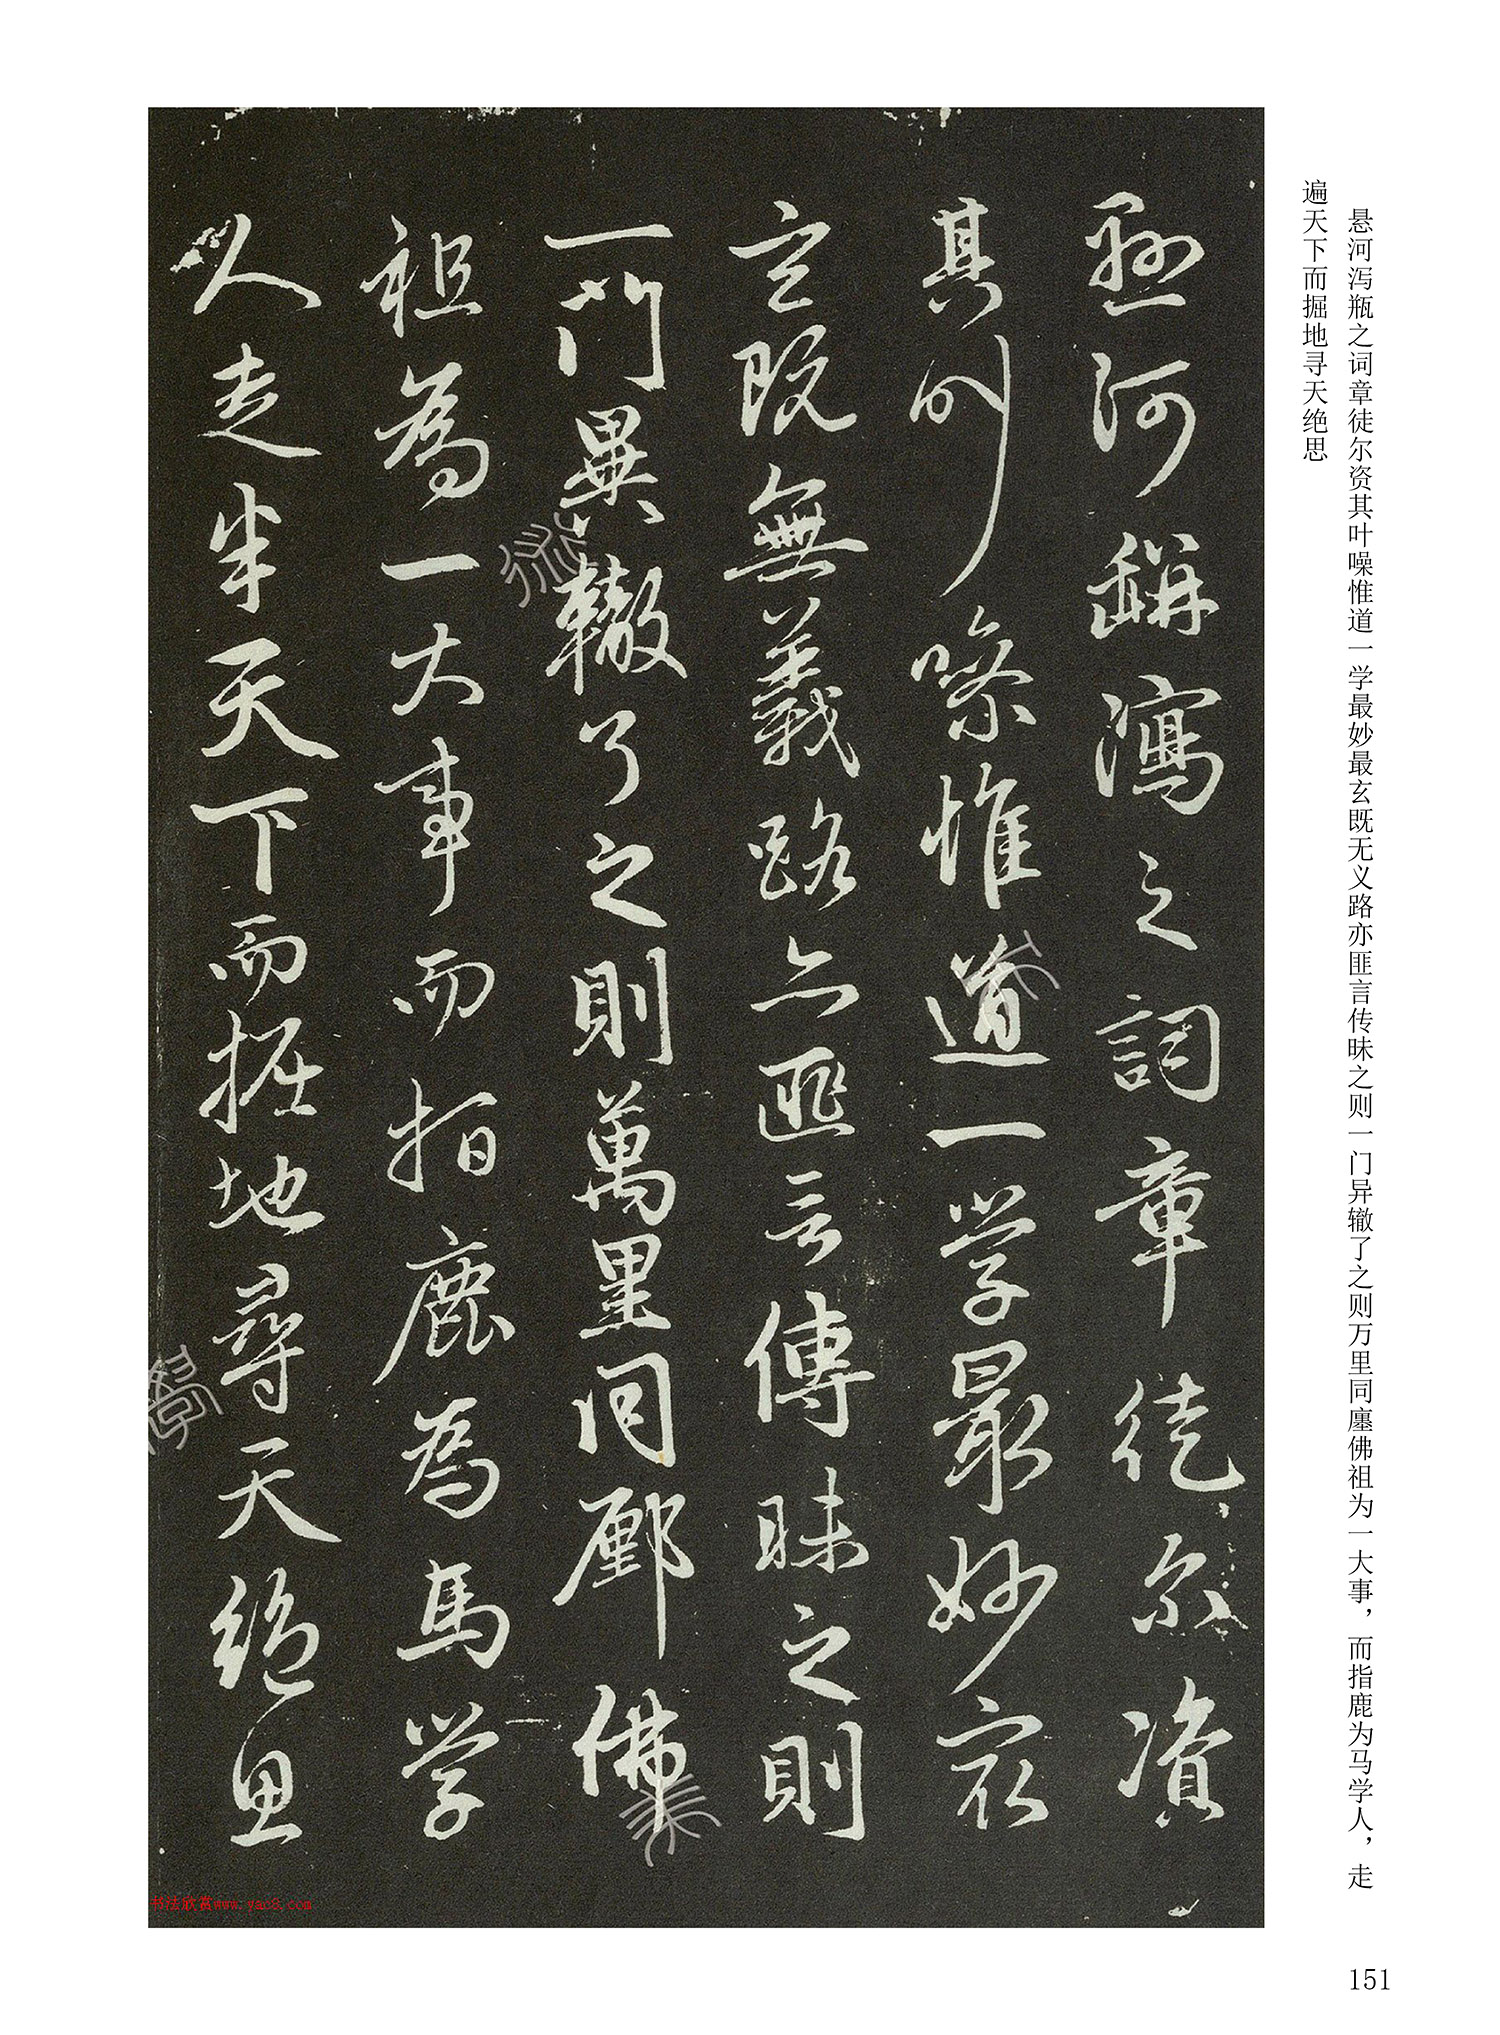 悬河泻瓶之词章徒尔资其叶噪惟道一学最妙最玄既无义路亦匪言传昧之则一门异辙了之则万里同廛佛祖为一大事，而指鹿为马学人，走
遍天下而掘地寻天绝思
懸河缾瀉之詞章徒尔資
其叫噪惟道一学最妙㝡
玄既無義路亦匪言傳昧之則
一門異轍了之則萬里同鄽佛
祖為一大事而指鹿為馬学
人走半天下而掘地尋天絕思
书法欣赏www.yac8.com
151